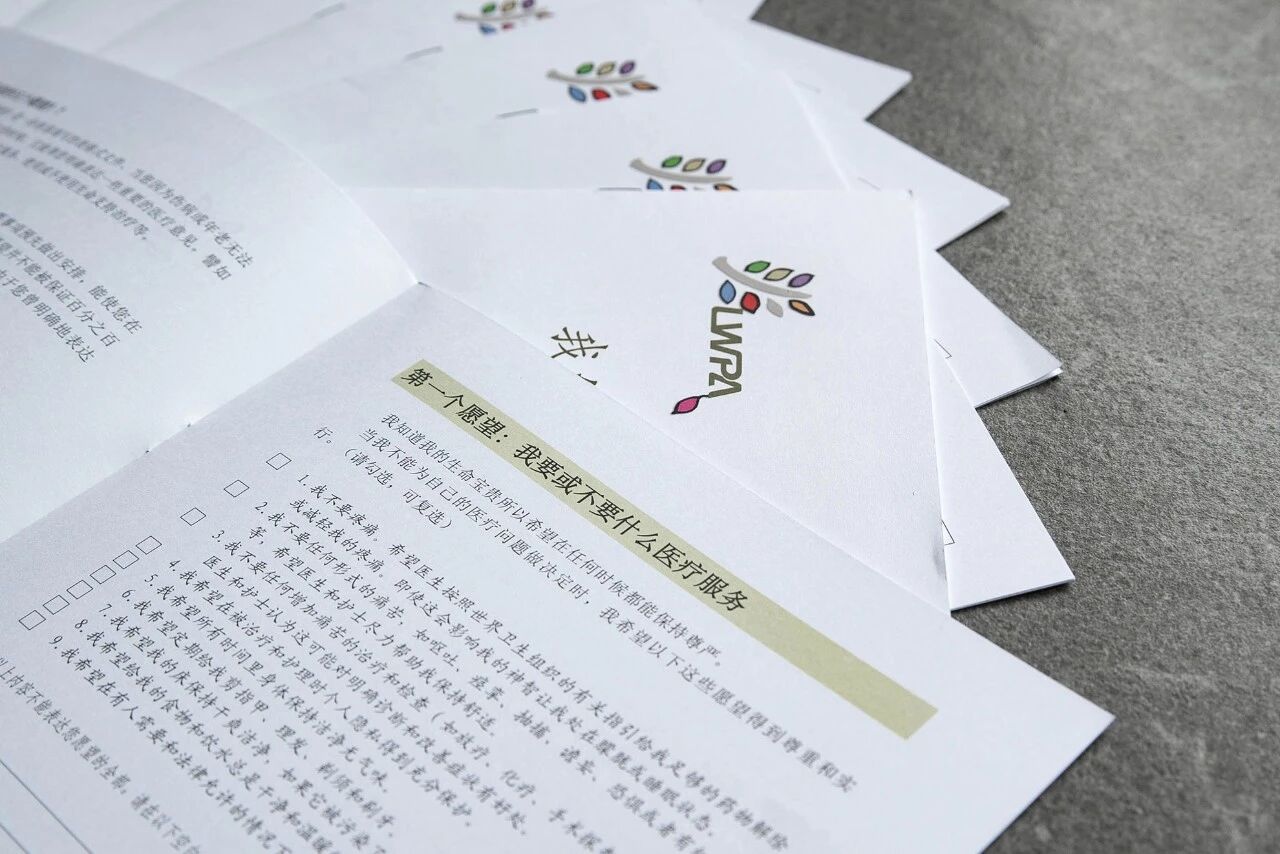 当您因为伤病或年老无法
重要的医疗意见，譬如
能使您在
不能被保证百分之百
于您曾明确地表达
LWPA
我
第一个愿望：我要或不要什么医疗服务
我知道我的生命宝贵所以希望在任何时候都能保持尊严。
当我不能为自己的医疗问题做决定时，我希望以下这些愿望得到尊重和实
行。（请勾选，可复选）
1. 我不要疼痛。希望医生按照世界卫生组织的有关指引给我足够的药物解除
或减轻我的疼痛。即使这会影响我的神智让我处在朦胧或睡眠状态。
2. 我不要任何形式的痛苦，如呕吐、痉挛、抽搐、谵妄、恐惧或者有
等，希望医生和护士尽力帮助我保持舒适。
3. 我不要任何增加痛苦的治疗和检查（如放疗、化疗、手术探
医生和护士认为这可能对明确诊断和改善症状有好处。
4. 我希望在被治疗和护理时个人隐私得到充分保护。
5. 我希望所有时间里身体保持洁净无气味。
6. 我希望定期给我剪指甲、理发、剃须和刷牙。
7. 我希望我的床保持干爽洁净，如果它被污染了
8. 我希望给我的食物和饮水总是干净和温暖
9. 我希望在有人需要和法律允许的情况下
以上内容不能表达您愿望的全部，请在以下空白